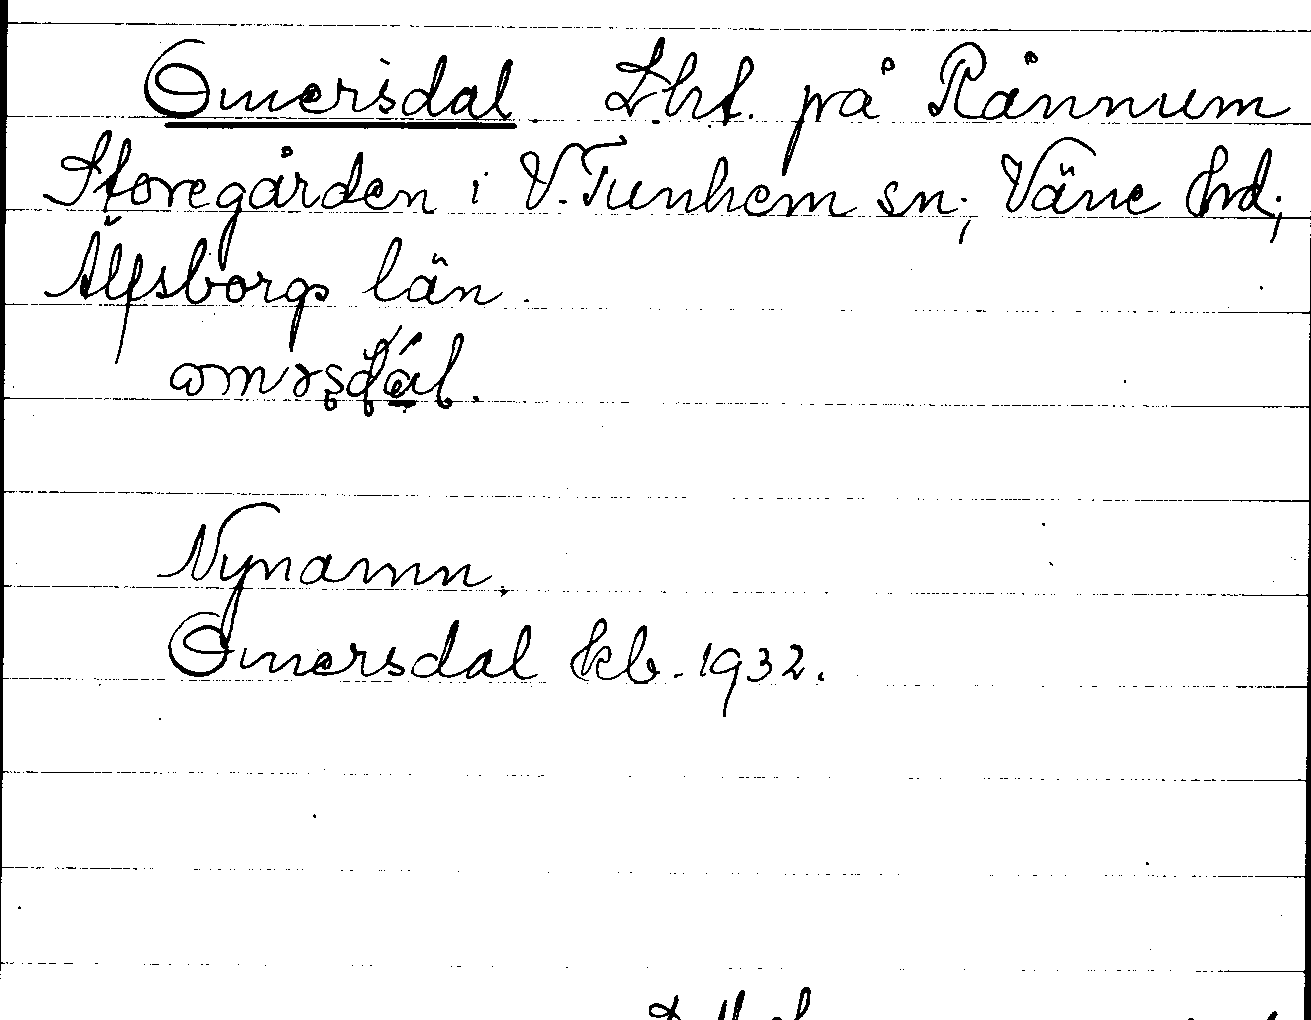 Omersdal. Lht. på Rånnum
Storegården i V. Tunhem sn; Väne hd;
Älfsborgs län.
Nynamn.
Omersdal kb. 1932.